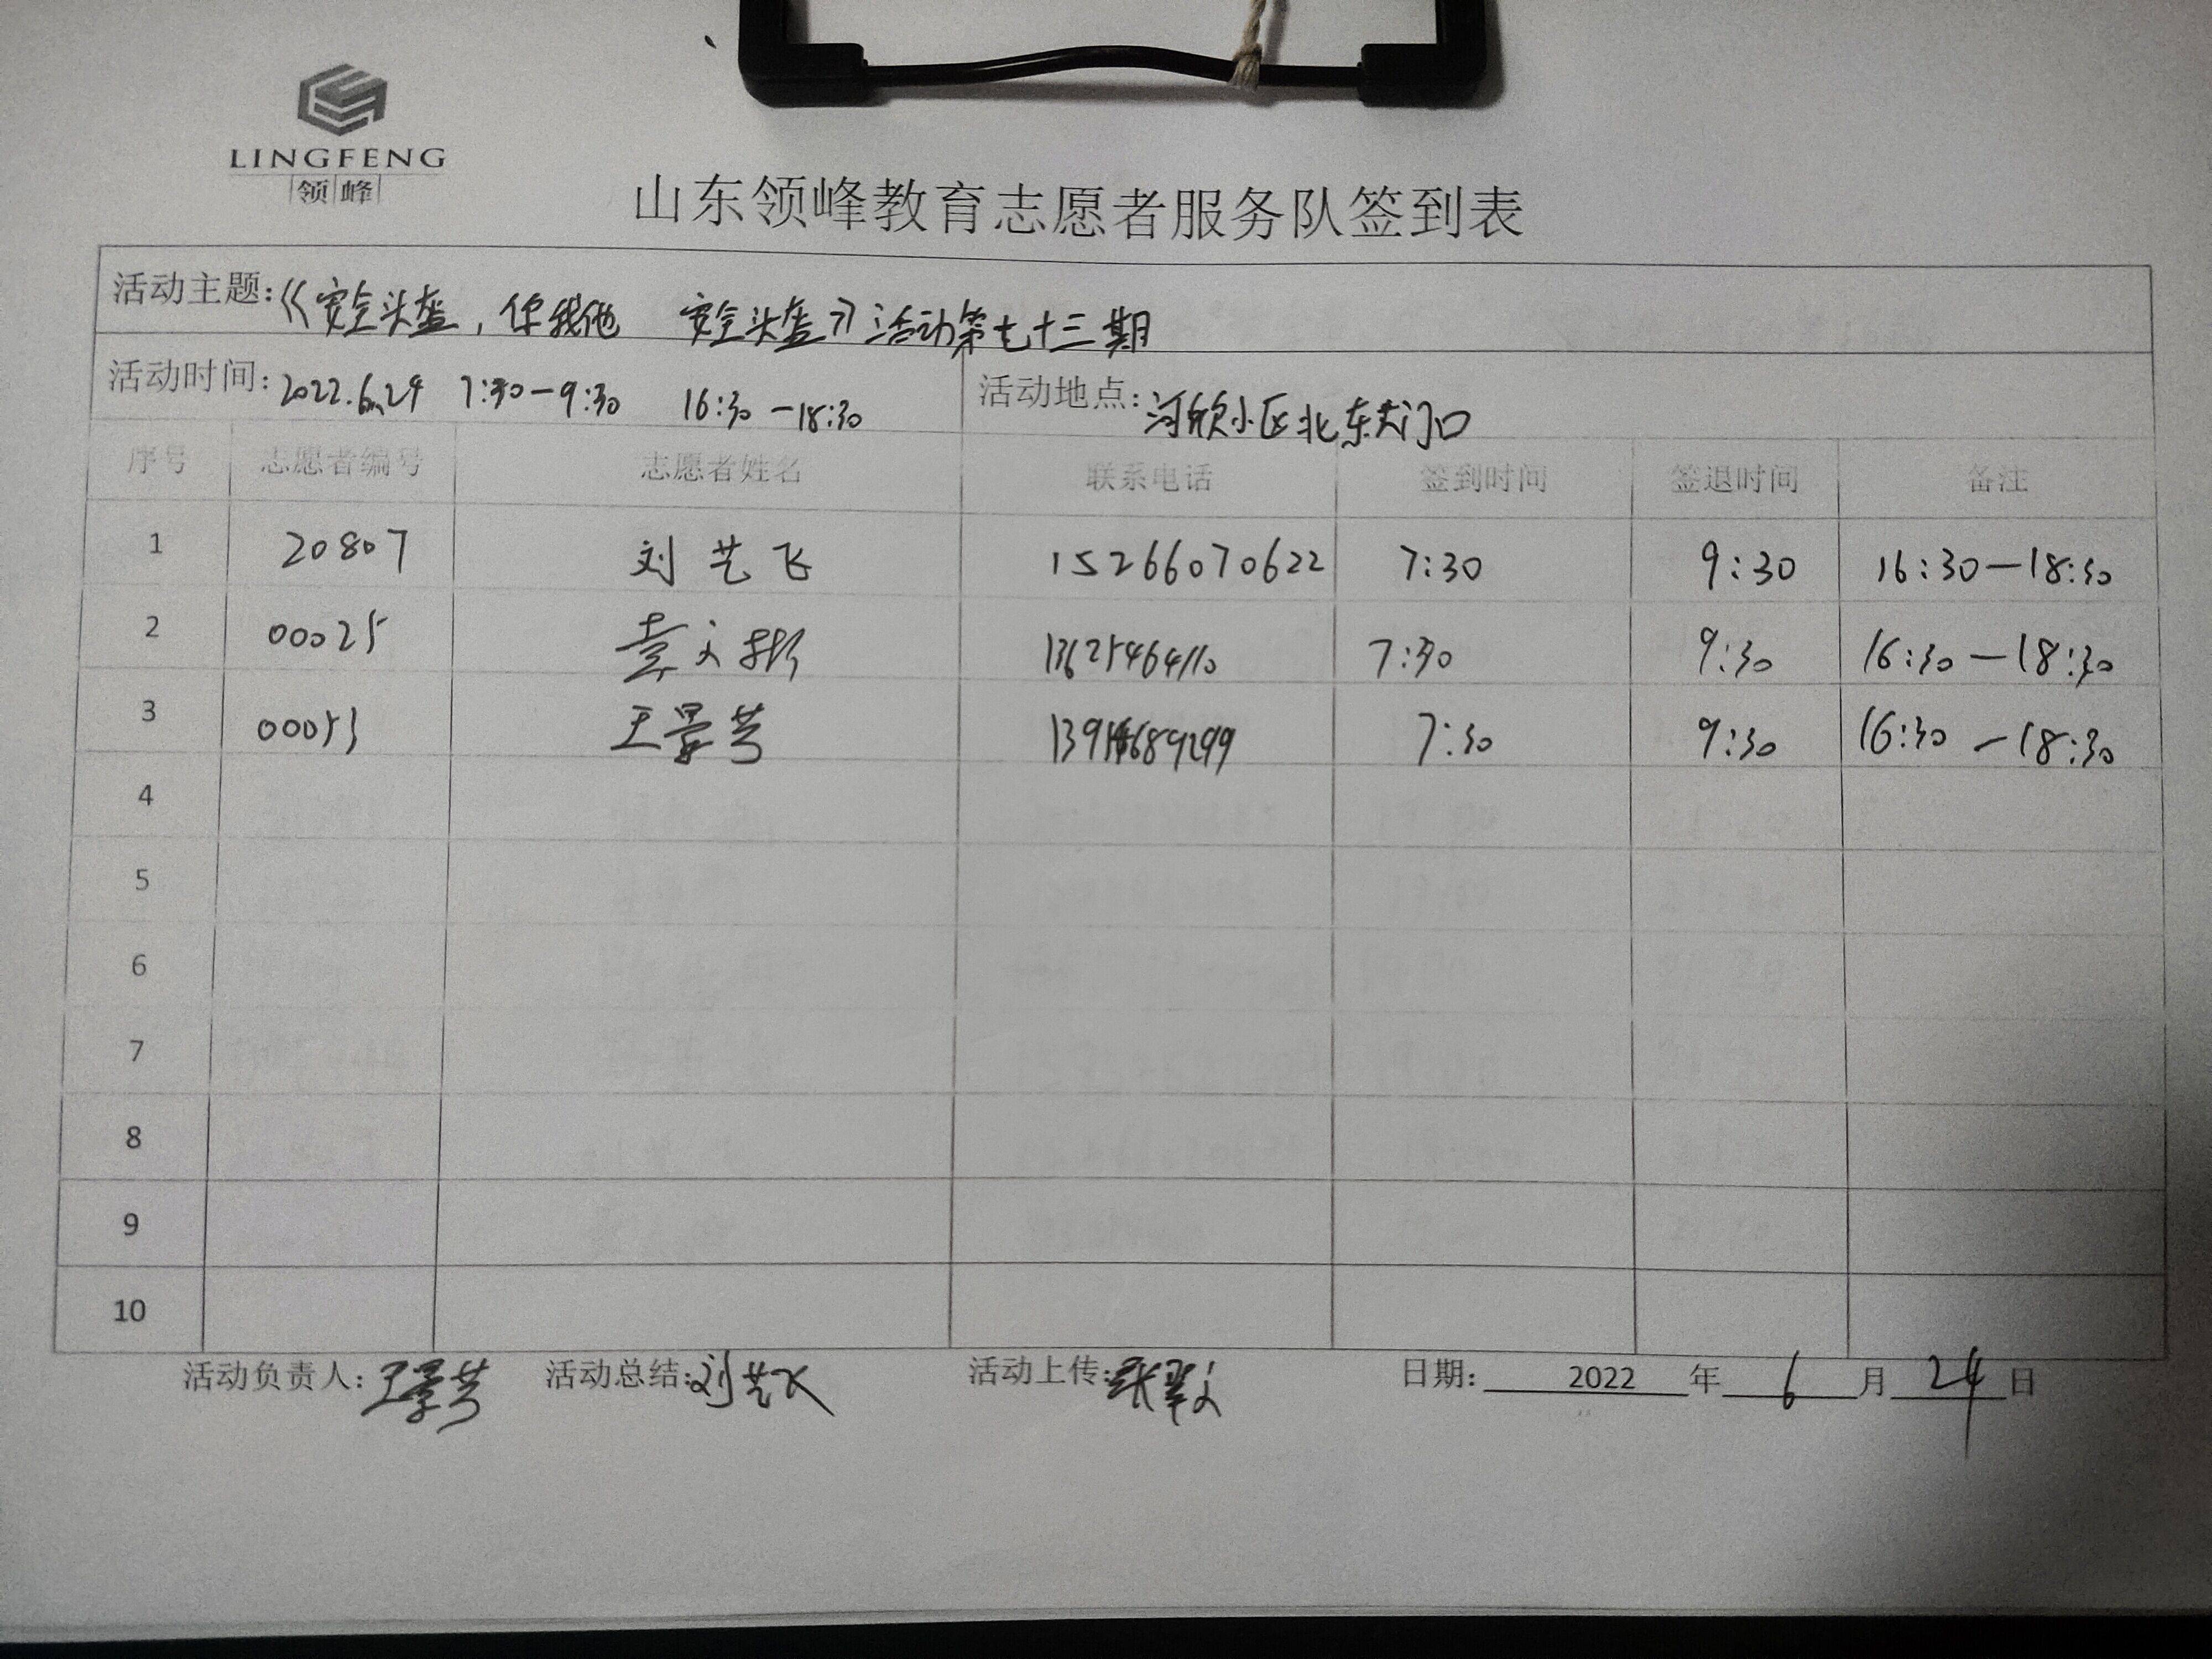 LINGFENG
领峰
山东领峰教育志愿者服务队签到表
活动主题:《安全头盔,你我他 安全头盔》活动第七十三期
活动时间:2022.6.24 7:30-9:30 16:30-18:30 活动地点:河欣小区北东大门口
序号 志愿者编号 志愿者姓名 联系电话 签到时间 签退时间 备注
1 20807 刘艺飞 15266070622 7:30 9:30 16:30-18:30
2 00025 袁文彬 13625464110 7:30 9:30 16:30-18:30
3 00053 王景芳 7:30 9:30 16:30-18:30
4
5
6
7
8
9
10
活动负责人:王景芳 活动总结:刘艺飞 活动上传:张翠文 日期: 2022 年 6 月 24 日